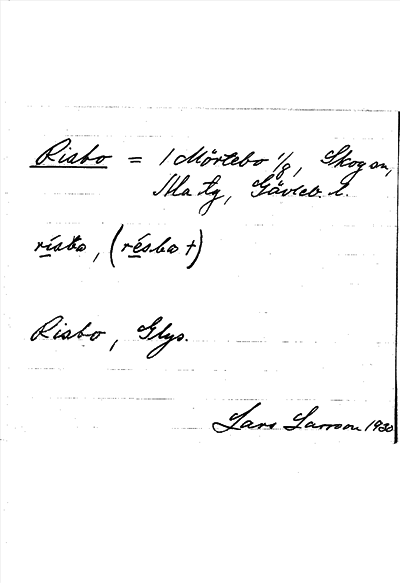 Risbo = 1 Mörtebo 1/8, Skogen,
Ma tg, Gävleb. l.
rísba, (résba †)
Risbo, Glys.
Lars Larsson 1930